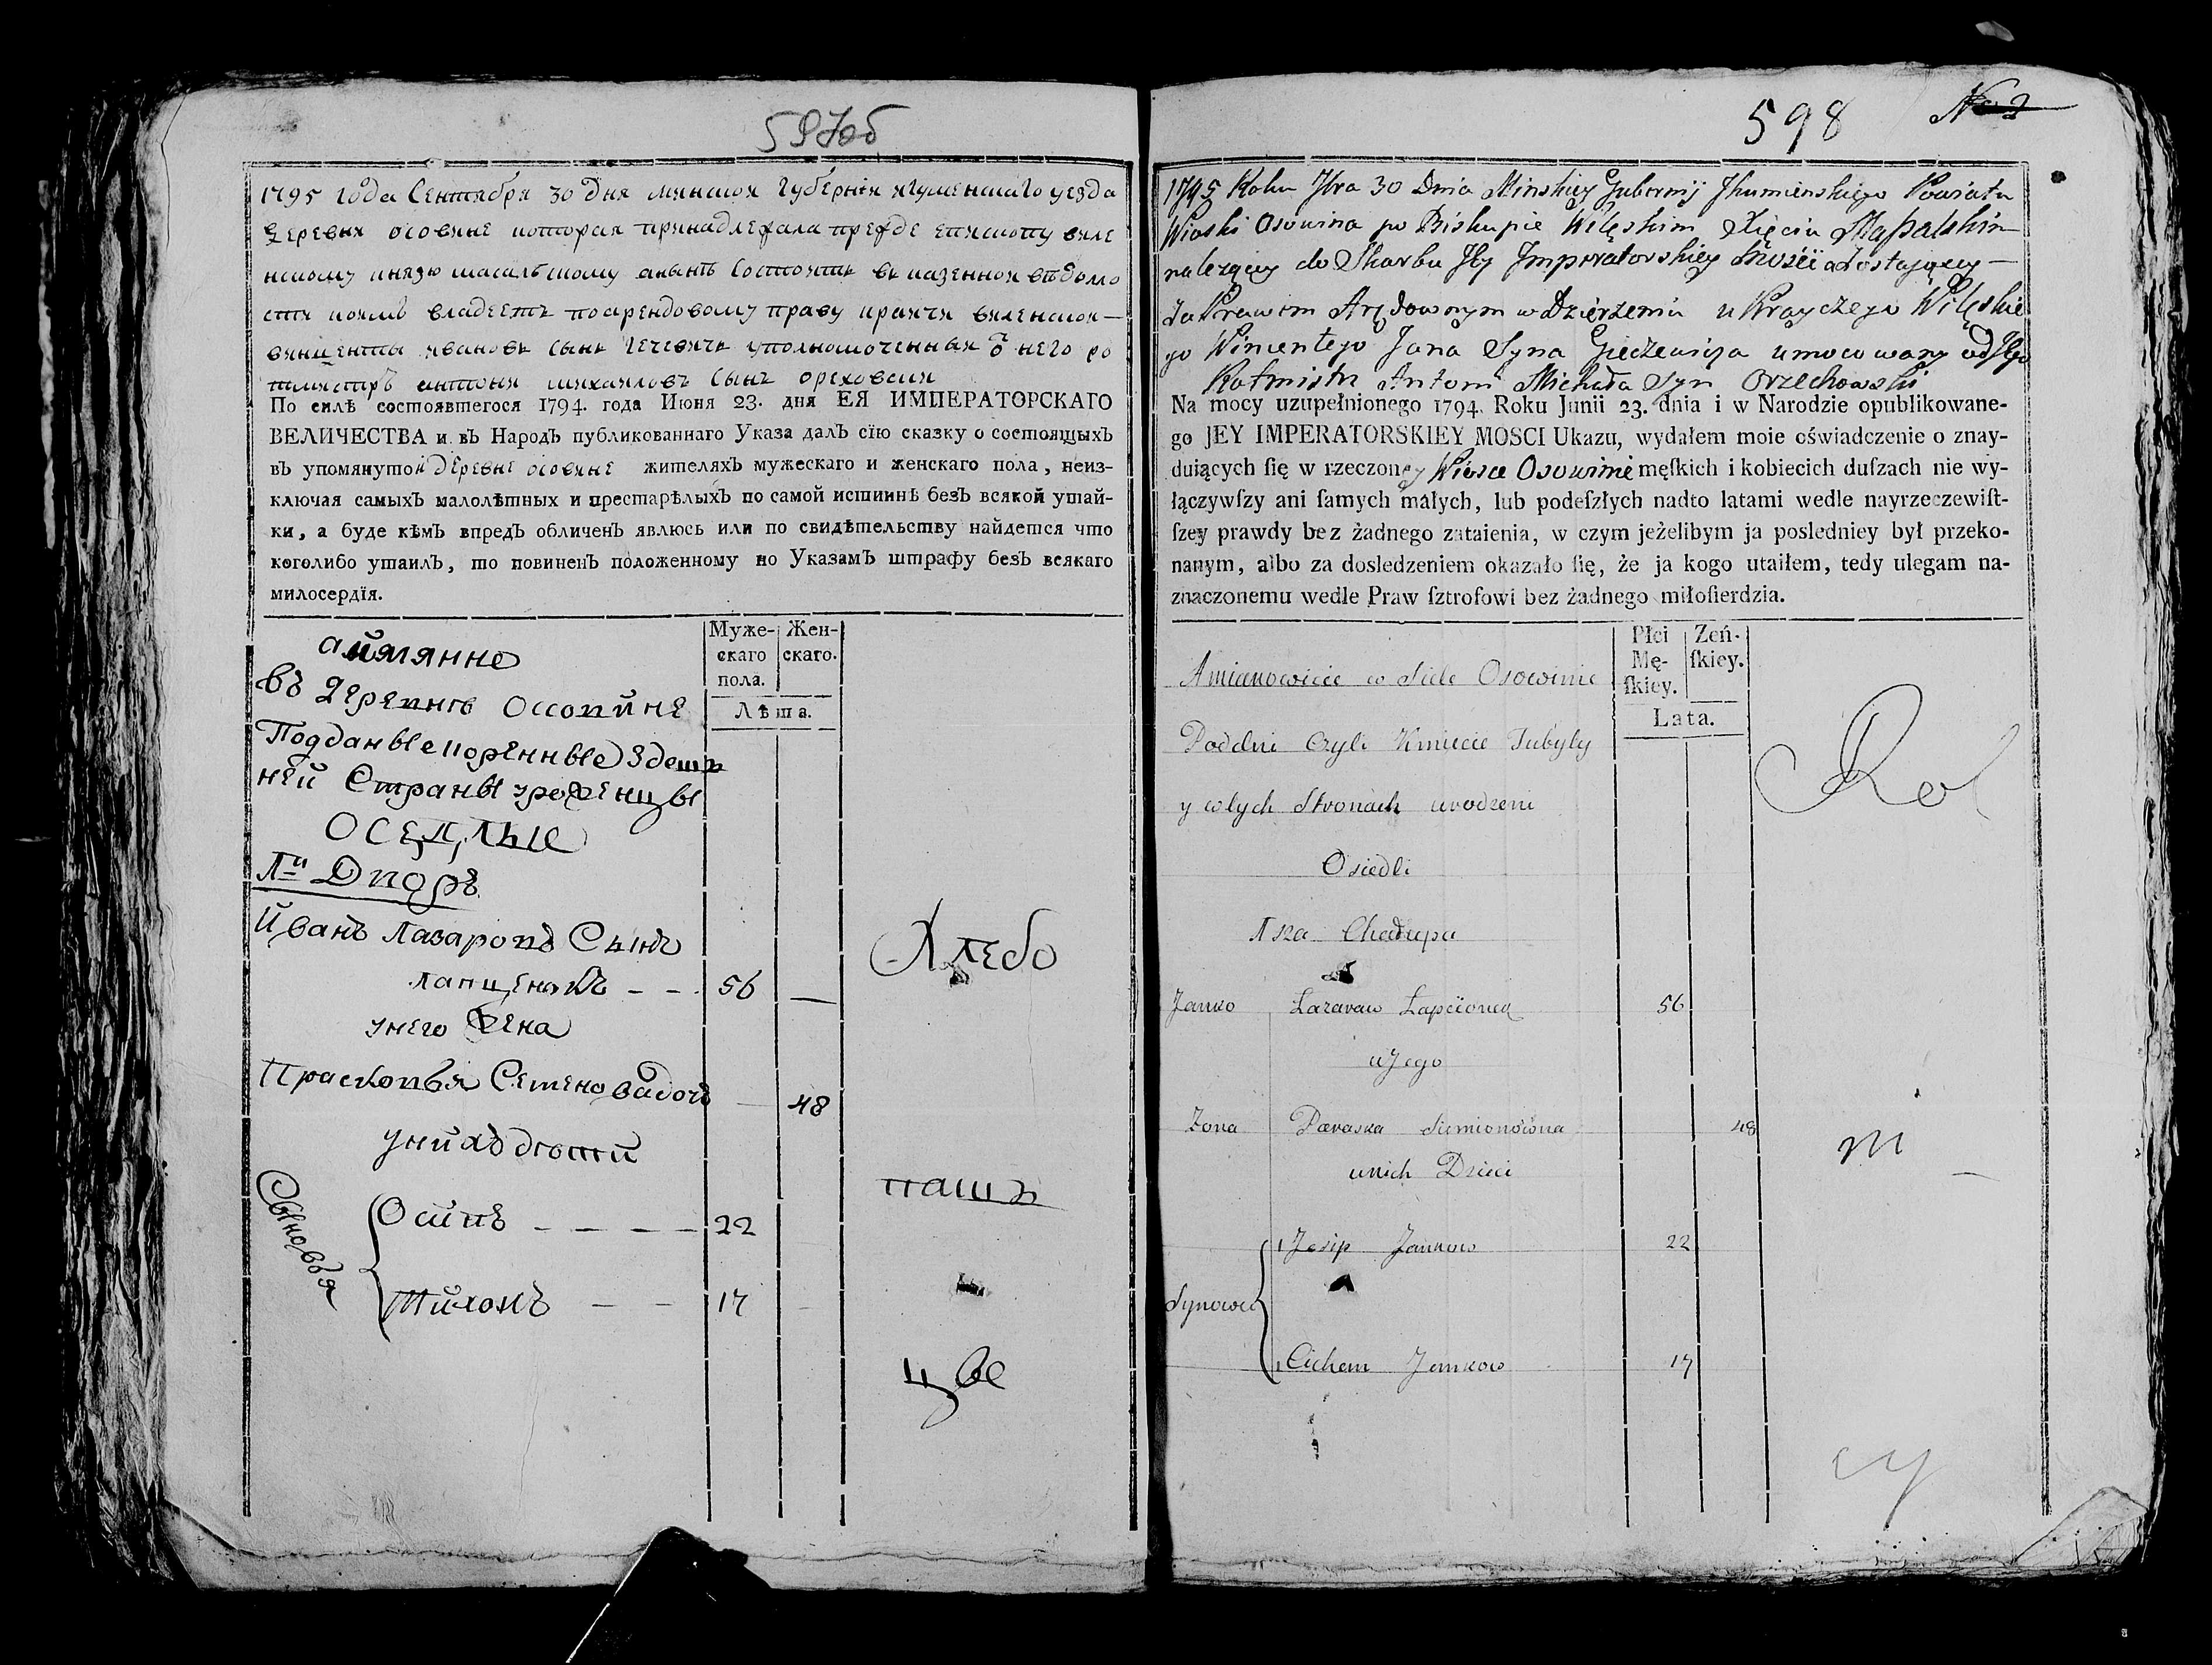 597об
1795 года Сентября 30 дня минской губернїи игуменскаго уезда
деревни осовине которая принадлежала прежде епископу виле
нскому князю масальскому анынѣ состоитъ въ казенной вѣдомо
сти коимъ владеетъ поарендовому праву крайчи виленской
винценты ивановъ сынъ гечевичъ уполномоченный ѿ него ро
тмистръ антони михаиловъ сынъ ореховски
По силѣ состоявшегося 1794. года Июня 23. дня ЕЯ ИМПЕРАТОРСКАГО
ВЕЛИЧЕСТВА и въ Народъ публикованнаго Указа далъ сїю сказку о состоящыхъ
въ упомянутой деревне осовине жителяхъ мужескаго и женскаго пола, неиз-
ключая самыхъ малолѣтныхъ и престарѣлыхъ по самой истиннѣ безъ всякой утай-
ки, а буде кѣмъ впредь обличенъ явлюсь или по свидѣтельству найдется что
коголибо утаилъ, то повиненъ положенному по Указамъ штрафу безъ всякаго
милосердїя.
Муже-
скаго
пола.
Жен-
скаго.
Лѣта.
аймянно
въ Деревнѣ Оссовине
Подданые коренные Здеш
ней Страны уроженцы
ОСЕДЛЫЕ
1й Дворъ
Иванъ Лазаровъ Сынъ
лапценокъ - - 56 —
унего жена
Прасковья Семенова дочъ — 48
унихъ дѣти
Сыновья
Осипъ - - - - 22
Тихонъ - - 17
Хлебо
паш
цы
598 No 3
1795 Roku 7bra 30 Dnia Minskiey Gubernij Jhumienskiego Powiatu
Wioski Osowina po Biskupie Wileskim Xięciu Massalskim
nalezący do Skarbu Jey Imperatorskiey Mości a zostającey
za Prawem Arędownym w Dzierzeniu u Krayczego Wileskie
go Wincentego Jana Syna Gieczewicza umocowany od Jego
Rotmistrz Antoni Michała Syn Orzechowski
Na mocy uzupełnionego 1794. Roku Junii 23. dnia i w Narodzie opublikowane-
go JEY IMPERATORSKIEY MOSCI Ukazu, wydałem moie oświadczenie o znay-
duiących ſię w rzeczoney Wiosce Osowinie męſkich i kobiecich duſzach nie wy-
łączywſzy ani ſamych małych, lub podeſzłych nadto latami wedle nayrzeczewiſt-
ſzey prawdy bez żadnego zataienia, w czym jeżelibym ja posledniey był przeko-
nanym, albo za dosledzeniem okazało ſię, że ja kogo utaiłem, tedy ulegam na-
znaczonemu wedle Praw ſztrofowi bez żadnego miłoſierdzia.
Płci
Mę-
ſkiey.
Zeń-
ſkiey.
Lata.
Amianowicie w Siele Osowinie
Poddni Czyli Kmiecie Tubyly
y wtych Stronach urodzeni
Osiedli
1sza Chałupa
Janko Łazaraw Łapcionek 56
u Jego
Zona Paraska Siemionowna 48
unich Dzieci
Synowie
1 Josip Jankow 22
1 Cichon Jankow 17
Rol
ni
cy